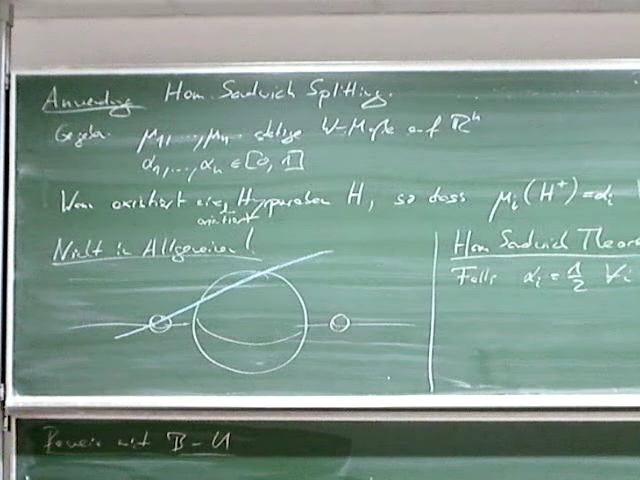 Anwendung Ham Sandwich Splitting.
Gegeben μ₁,...,μₙ stetige W-Maße auf ℝⁿ
α₁,...,αₙ ∈ [0,1]
Wann existiert eine Hyperebene H, so dass μᵢ(H⁺)=αᵢ ∀
orientierte
Nicht im Allgemeinen!
Ham Sandwich Theore
Falls αᵢ = 1/2 ∀i
Beweis mit B-U